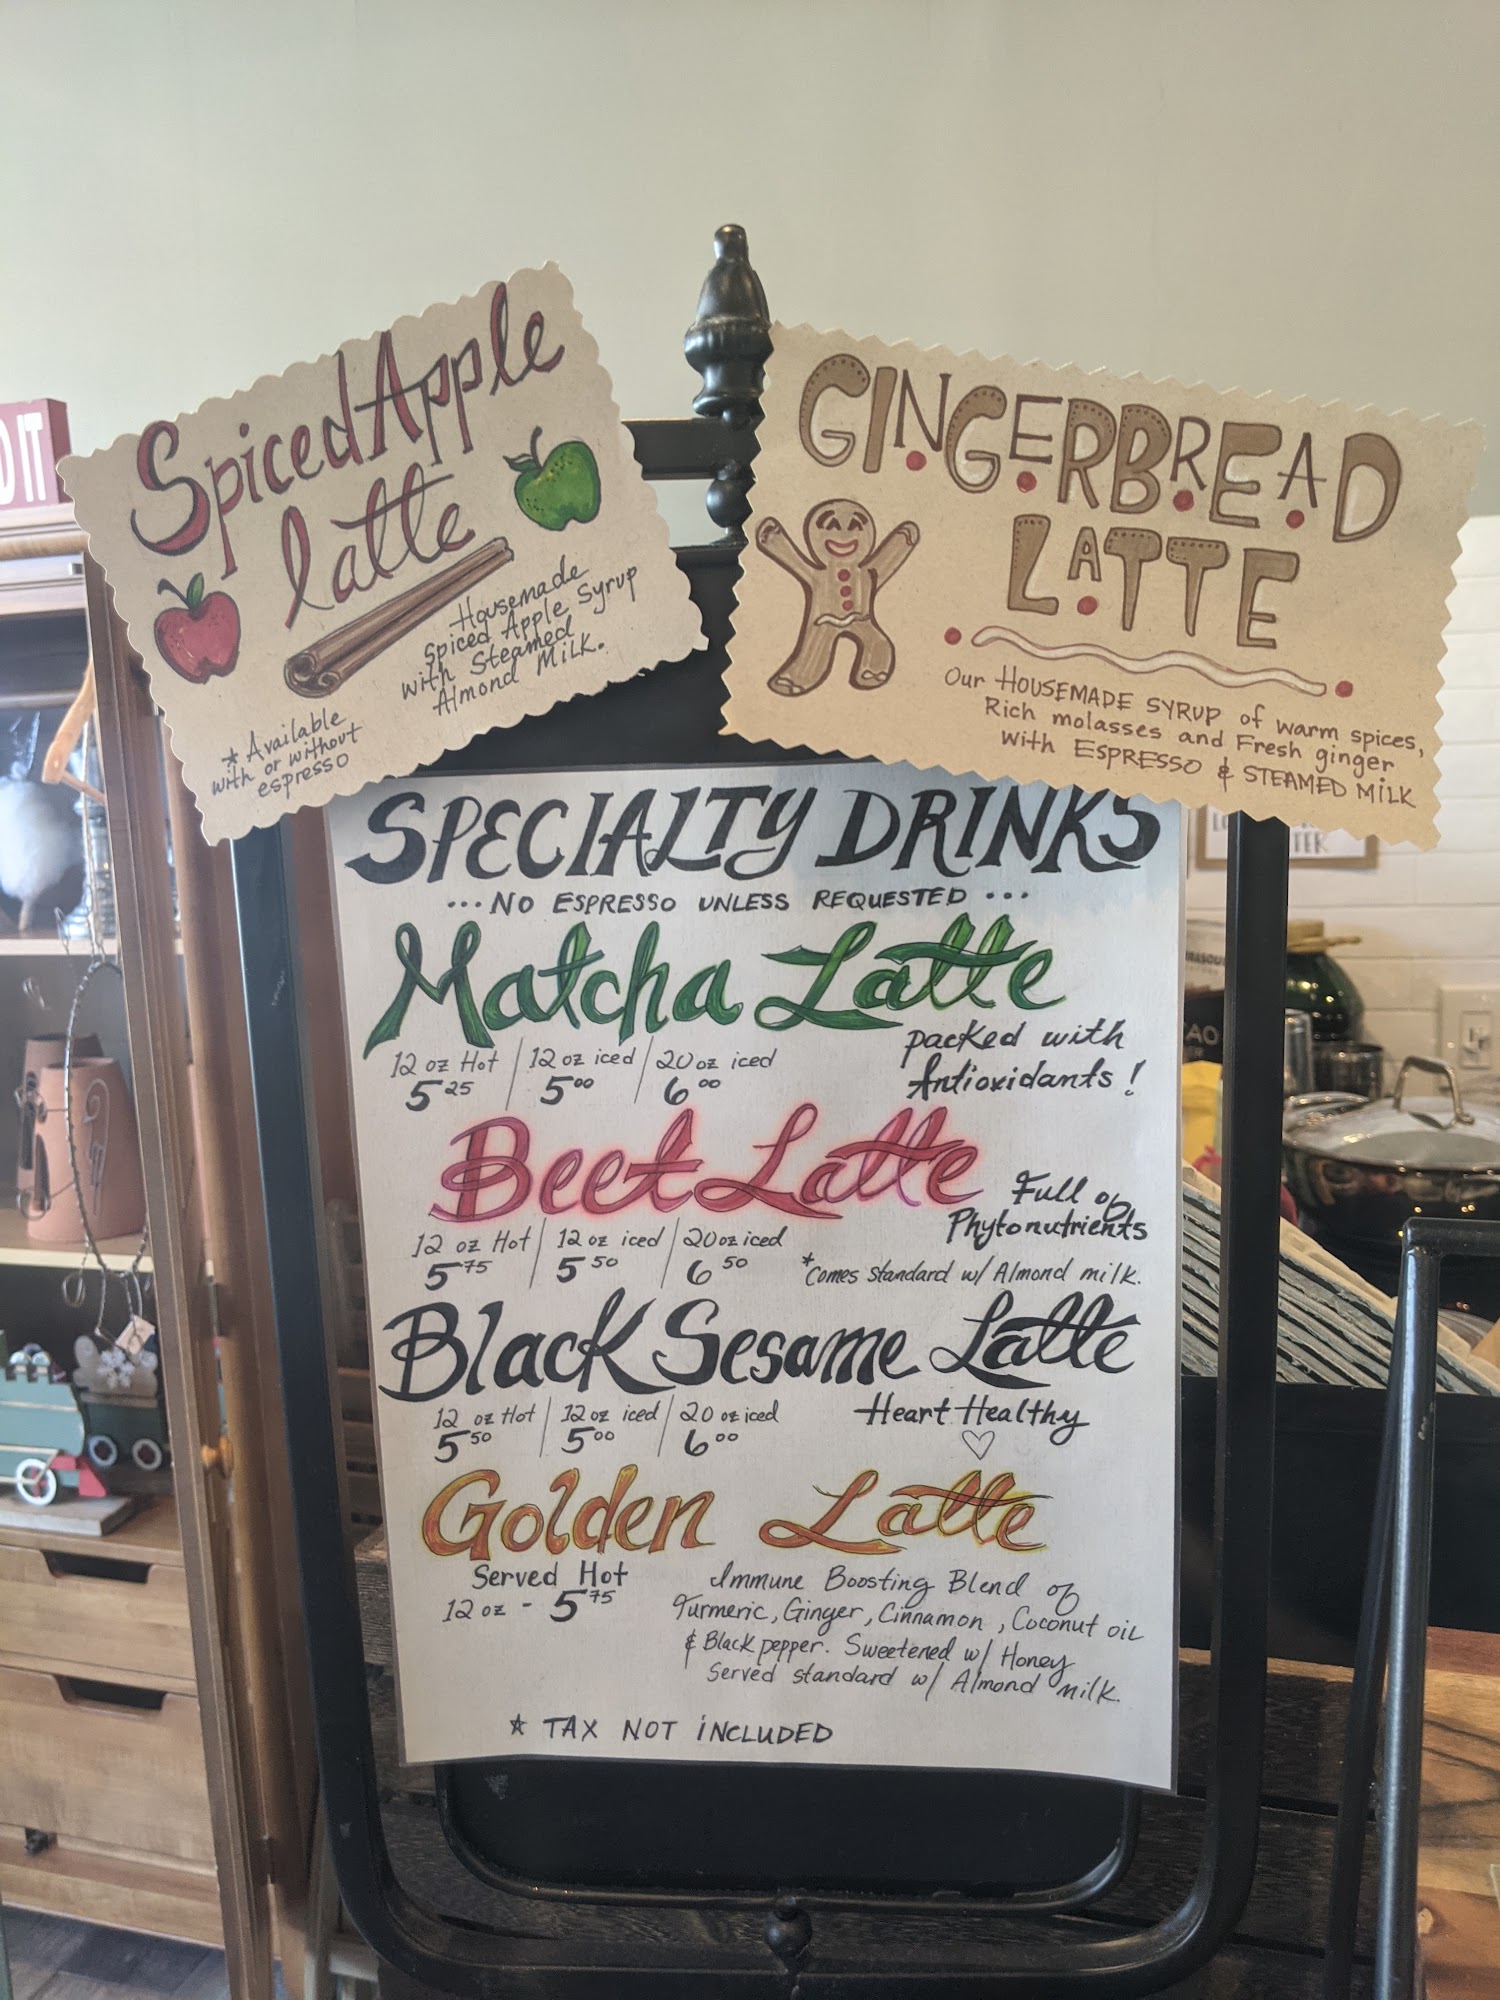 D IT
Spiced Apple
latte
Housemade
Spiced Apple Syrup
with Steamed
Almond Milk.
* Available
with or without
espresso
GINGERBREAD
LATTE
Our HOUSEMADE SYRUP of warm spices,
Rich molasses and Fresh ginger
with ESPRESSO & STEAMED MILK
SPECIALTY DRINKS
...NO ESPRESSO UNLESS REQUESTED...
Matcha Latte
packed with
Antioxidants!
12 oz Hot / 12 oz iced / 20 oz iced
5 25 / 5 00 / 6 00
Beet Latte
Full of
Phytonutrients
12 oz Hot / 12 oz iced / 20 oz iced
5 75 / 5 50 / 6 50
*Comes standard w/ Almond milk.
Black Sesame Latte
12 oz Hot / 12 oz iced / 20 oz iced
5 50 / 5 00 / 6 00
Heart Healthy
Golden Latte
Served Hot
12 oz - 5 75
Immune Boosting Blend of
Turmeric, Ginger, Cinnamon, Coconut oil
& Black pepper. Sweetened w/ Honey
Served standard w/ Almond milk.
* TAX NOT INCLUDED